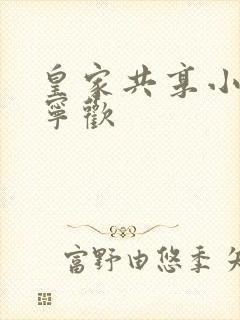 皇家共享小
寧歡
富野由悠季